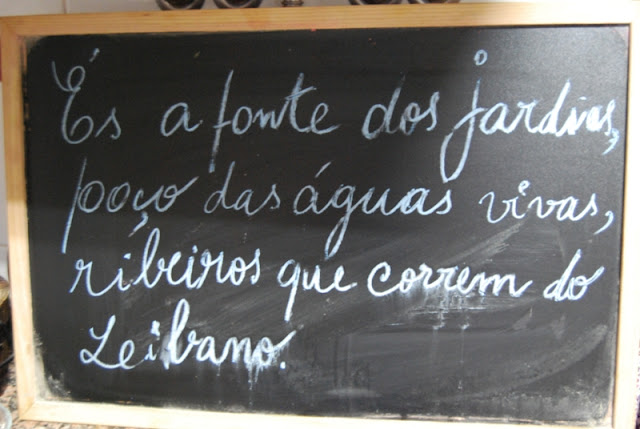 És a fonte dos jardins,
poço das águas vivas,
ribeiros que correm do
Leibano.